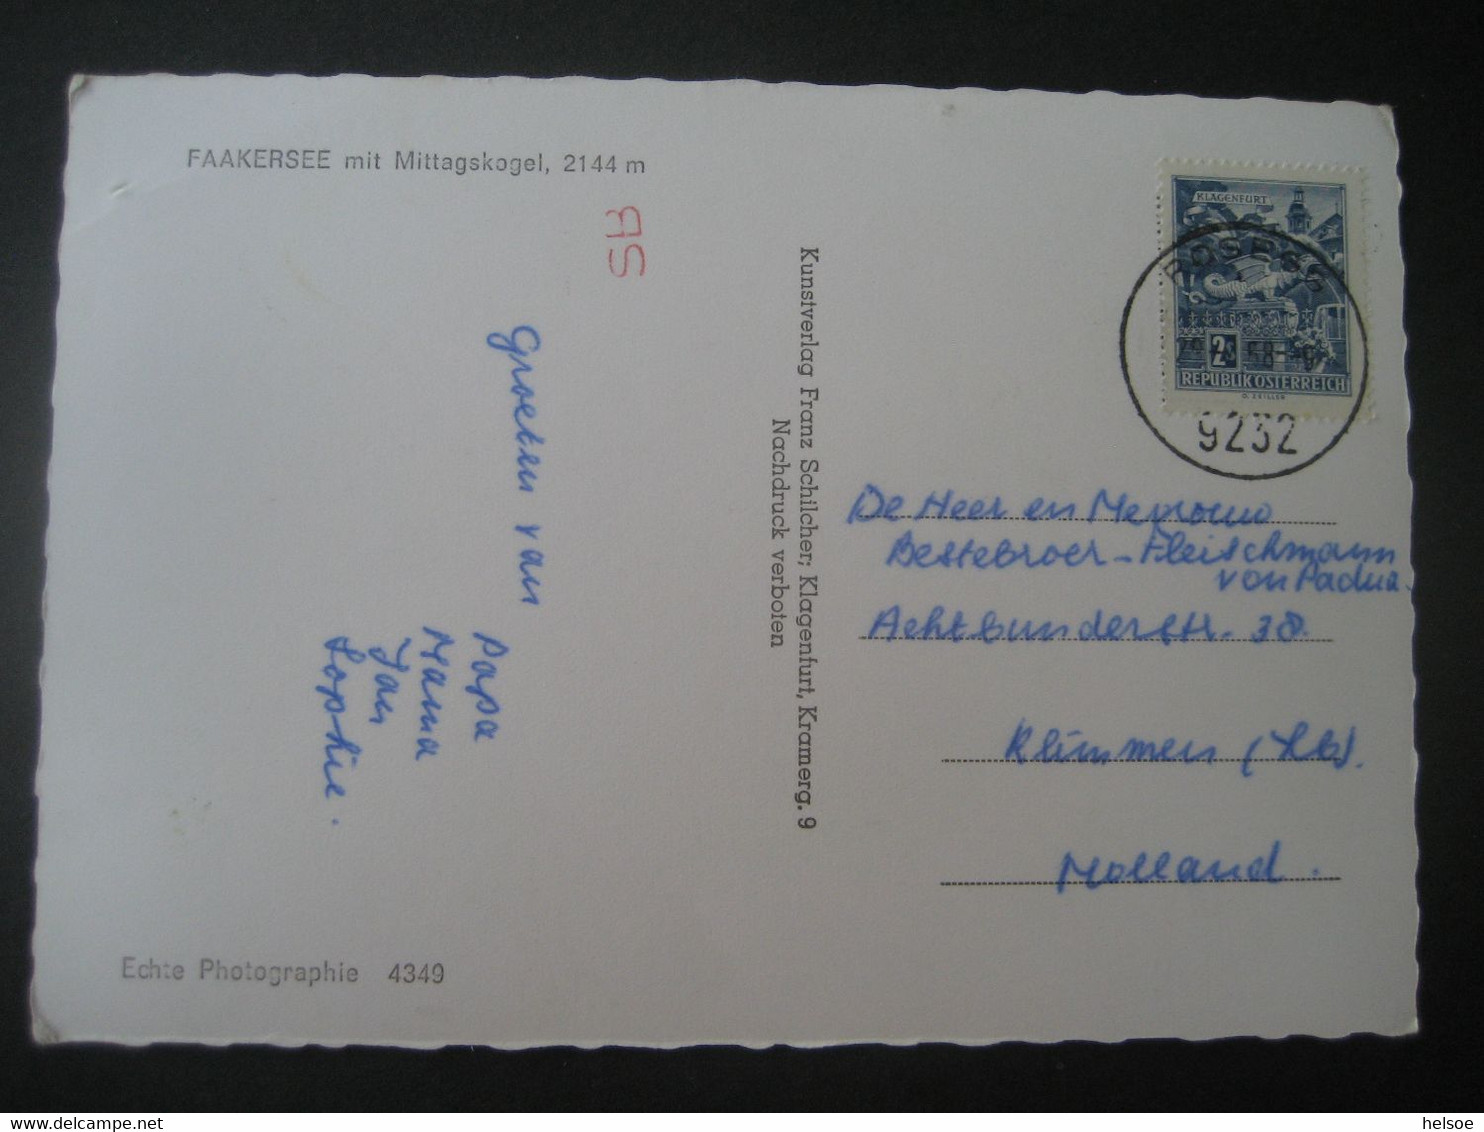 FAAKERSEE mit Mittagskogel, 2144 m
SB
Groeten van
Papa
Mama
Jan
Sophie.
Echte Photographie 4349
Kunstverlag Franz Schilcher; Klagenfurt, Kramerg. 9
Nachdruck verboten
KLAGENFURT
2S
REPUBLIK ÖSTERREICH
O. ZEILLER
9232
De Heer en Mevrouw
Bestebroer - Fleischmann
von Padua.
Achtbunderstr. 38.
Klimmen (Lb).
Holland.
helsoe
delcampe.net